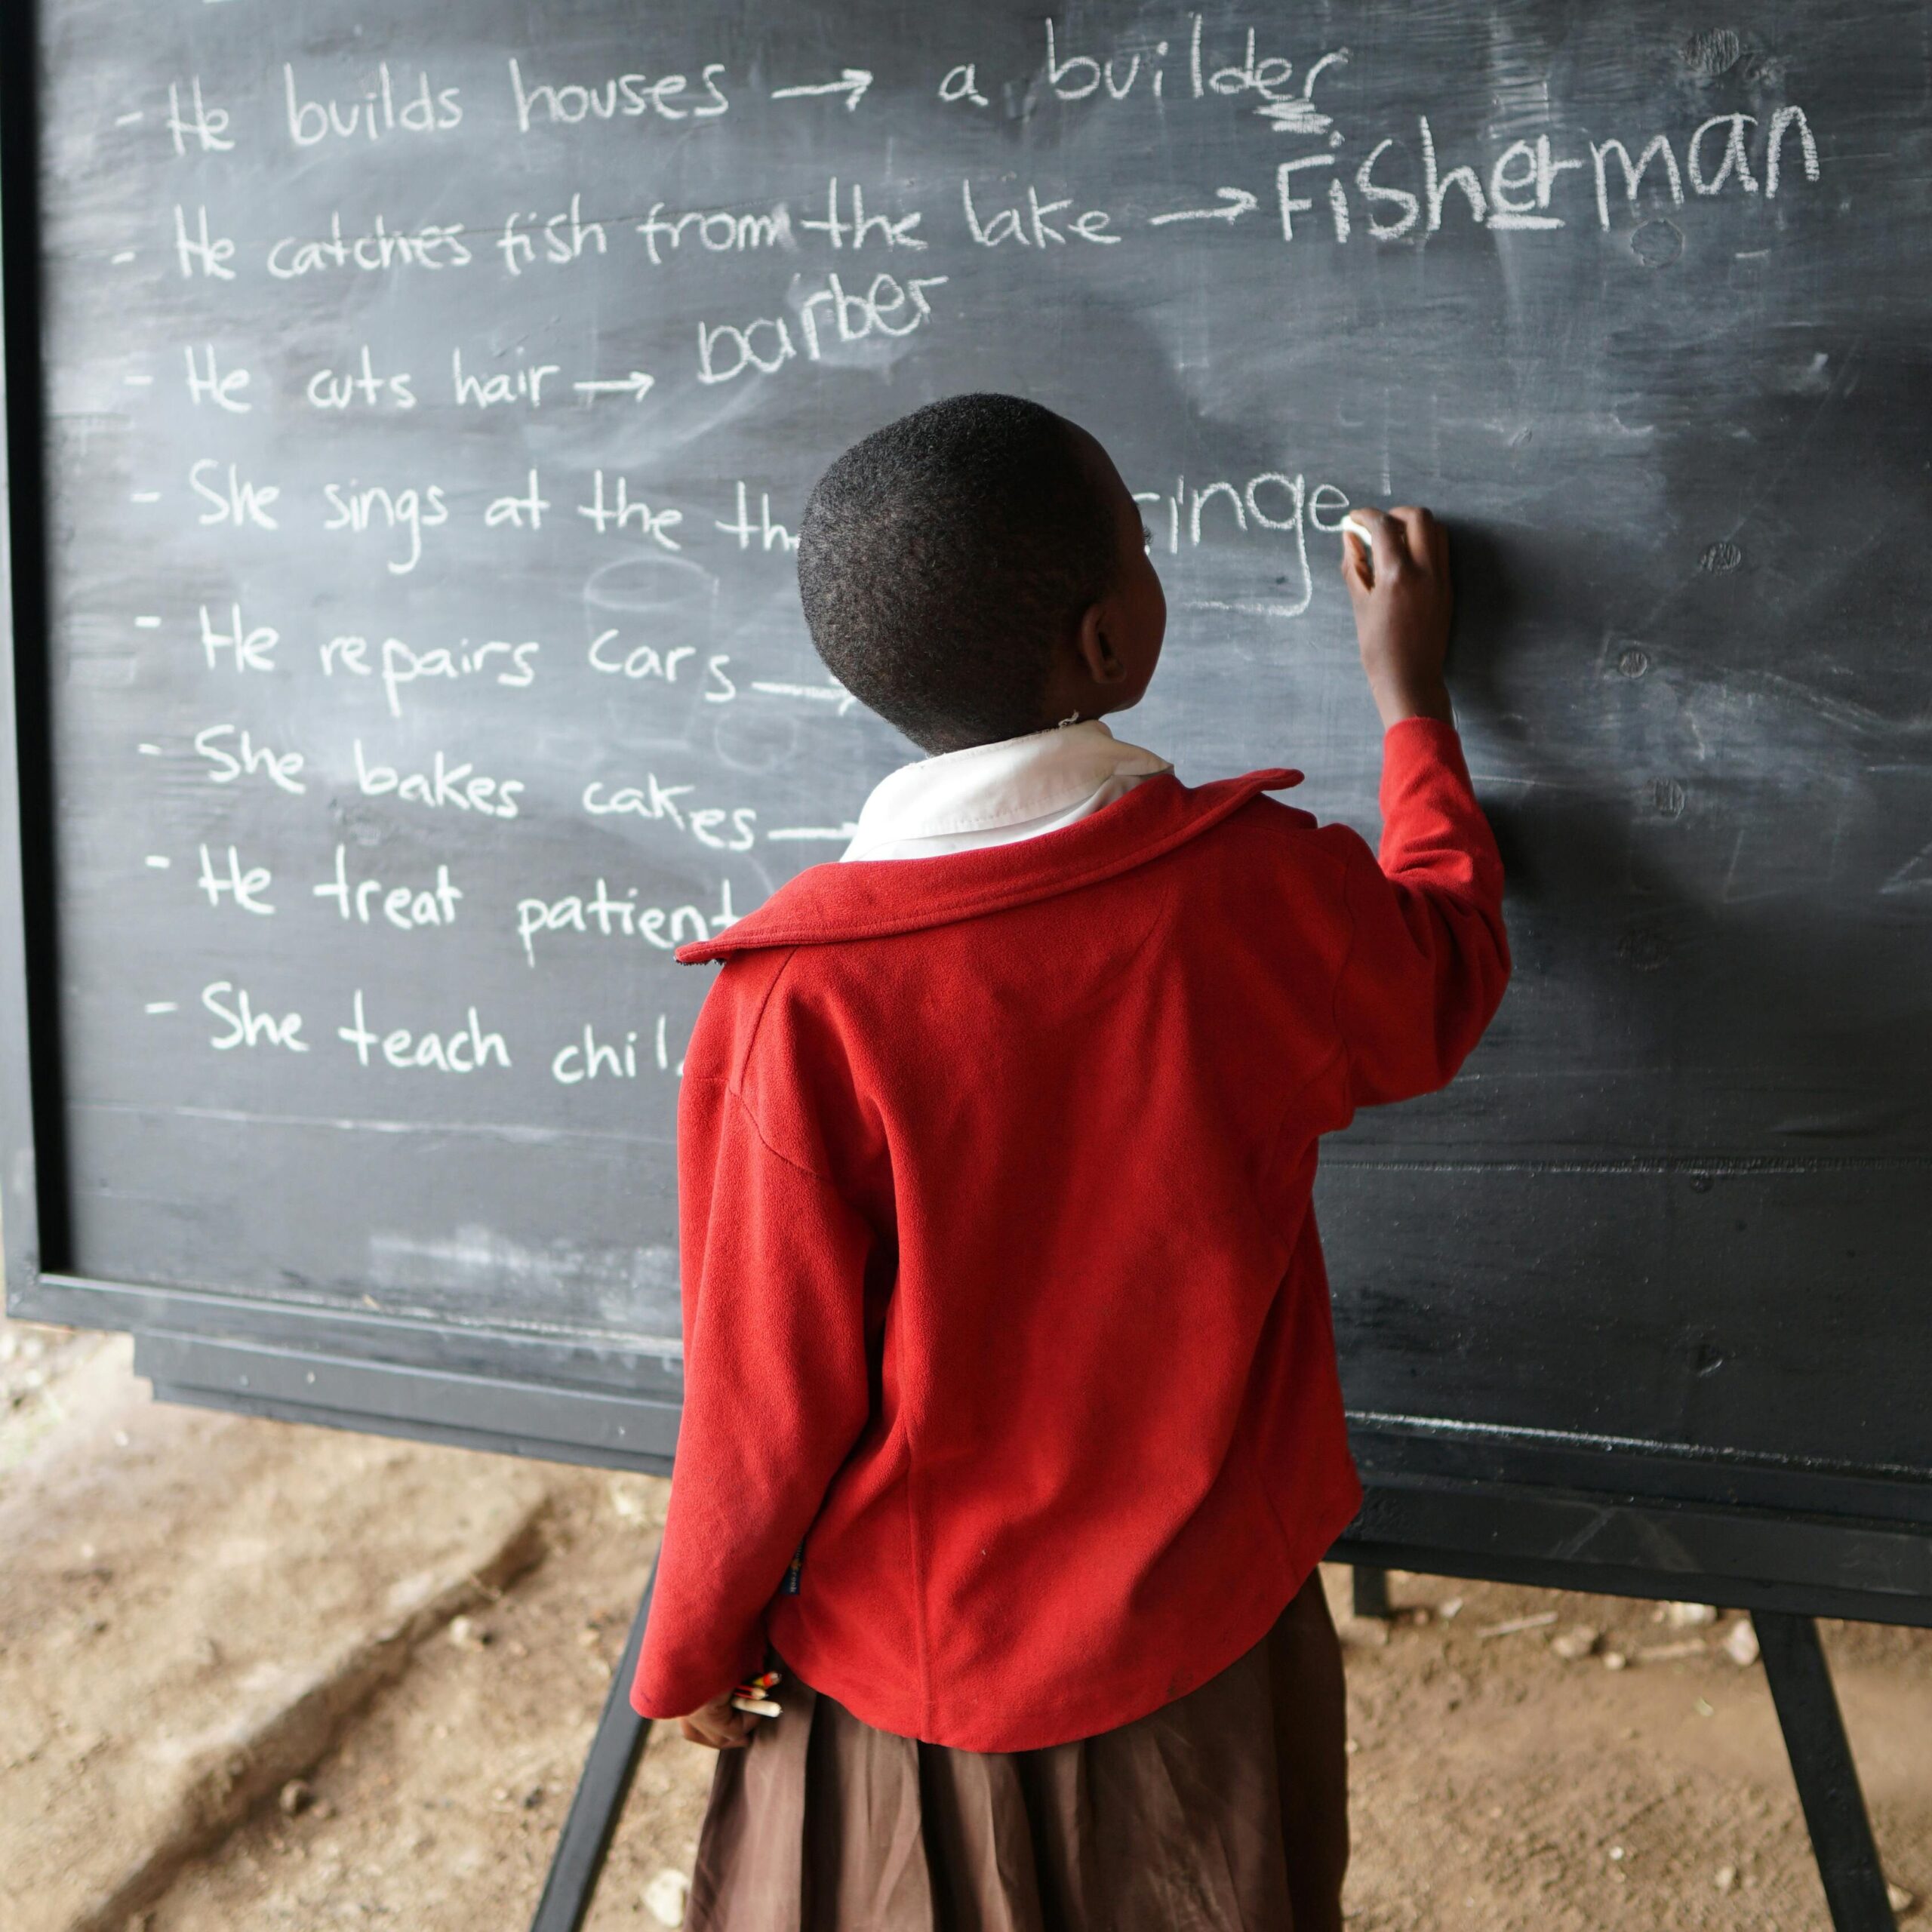 - He builds houses → a builder
- He catches fish from the lake → Fisherman
- He cuts hair → barber
- She sings at the
- He repairs cars →
- She bakes cakes →
- He treat
- She teach